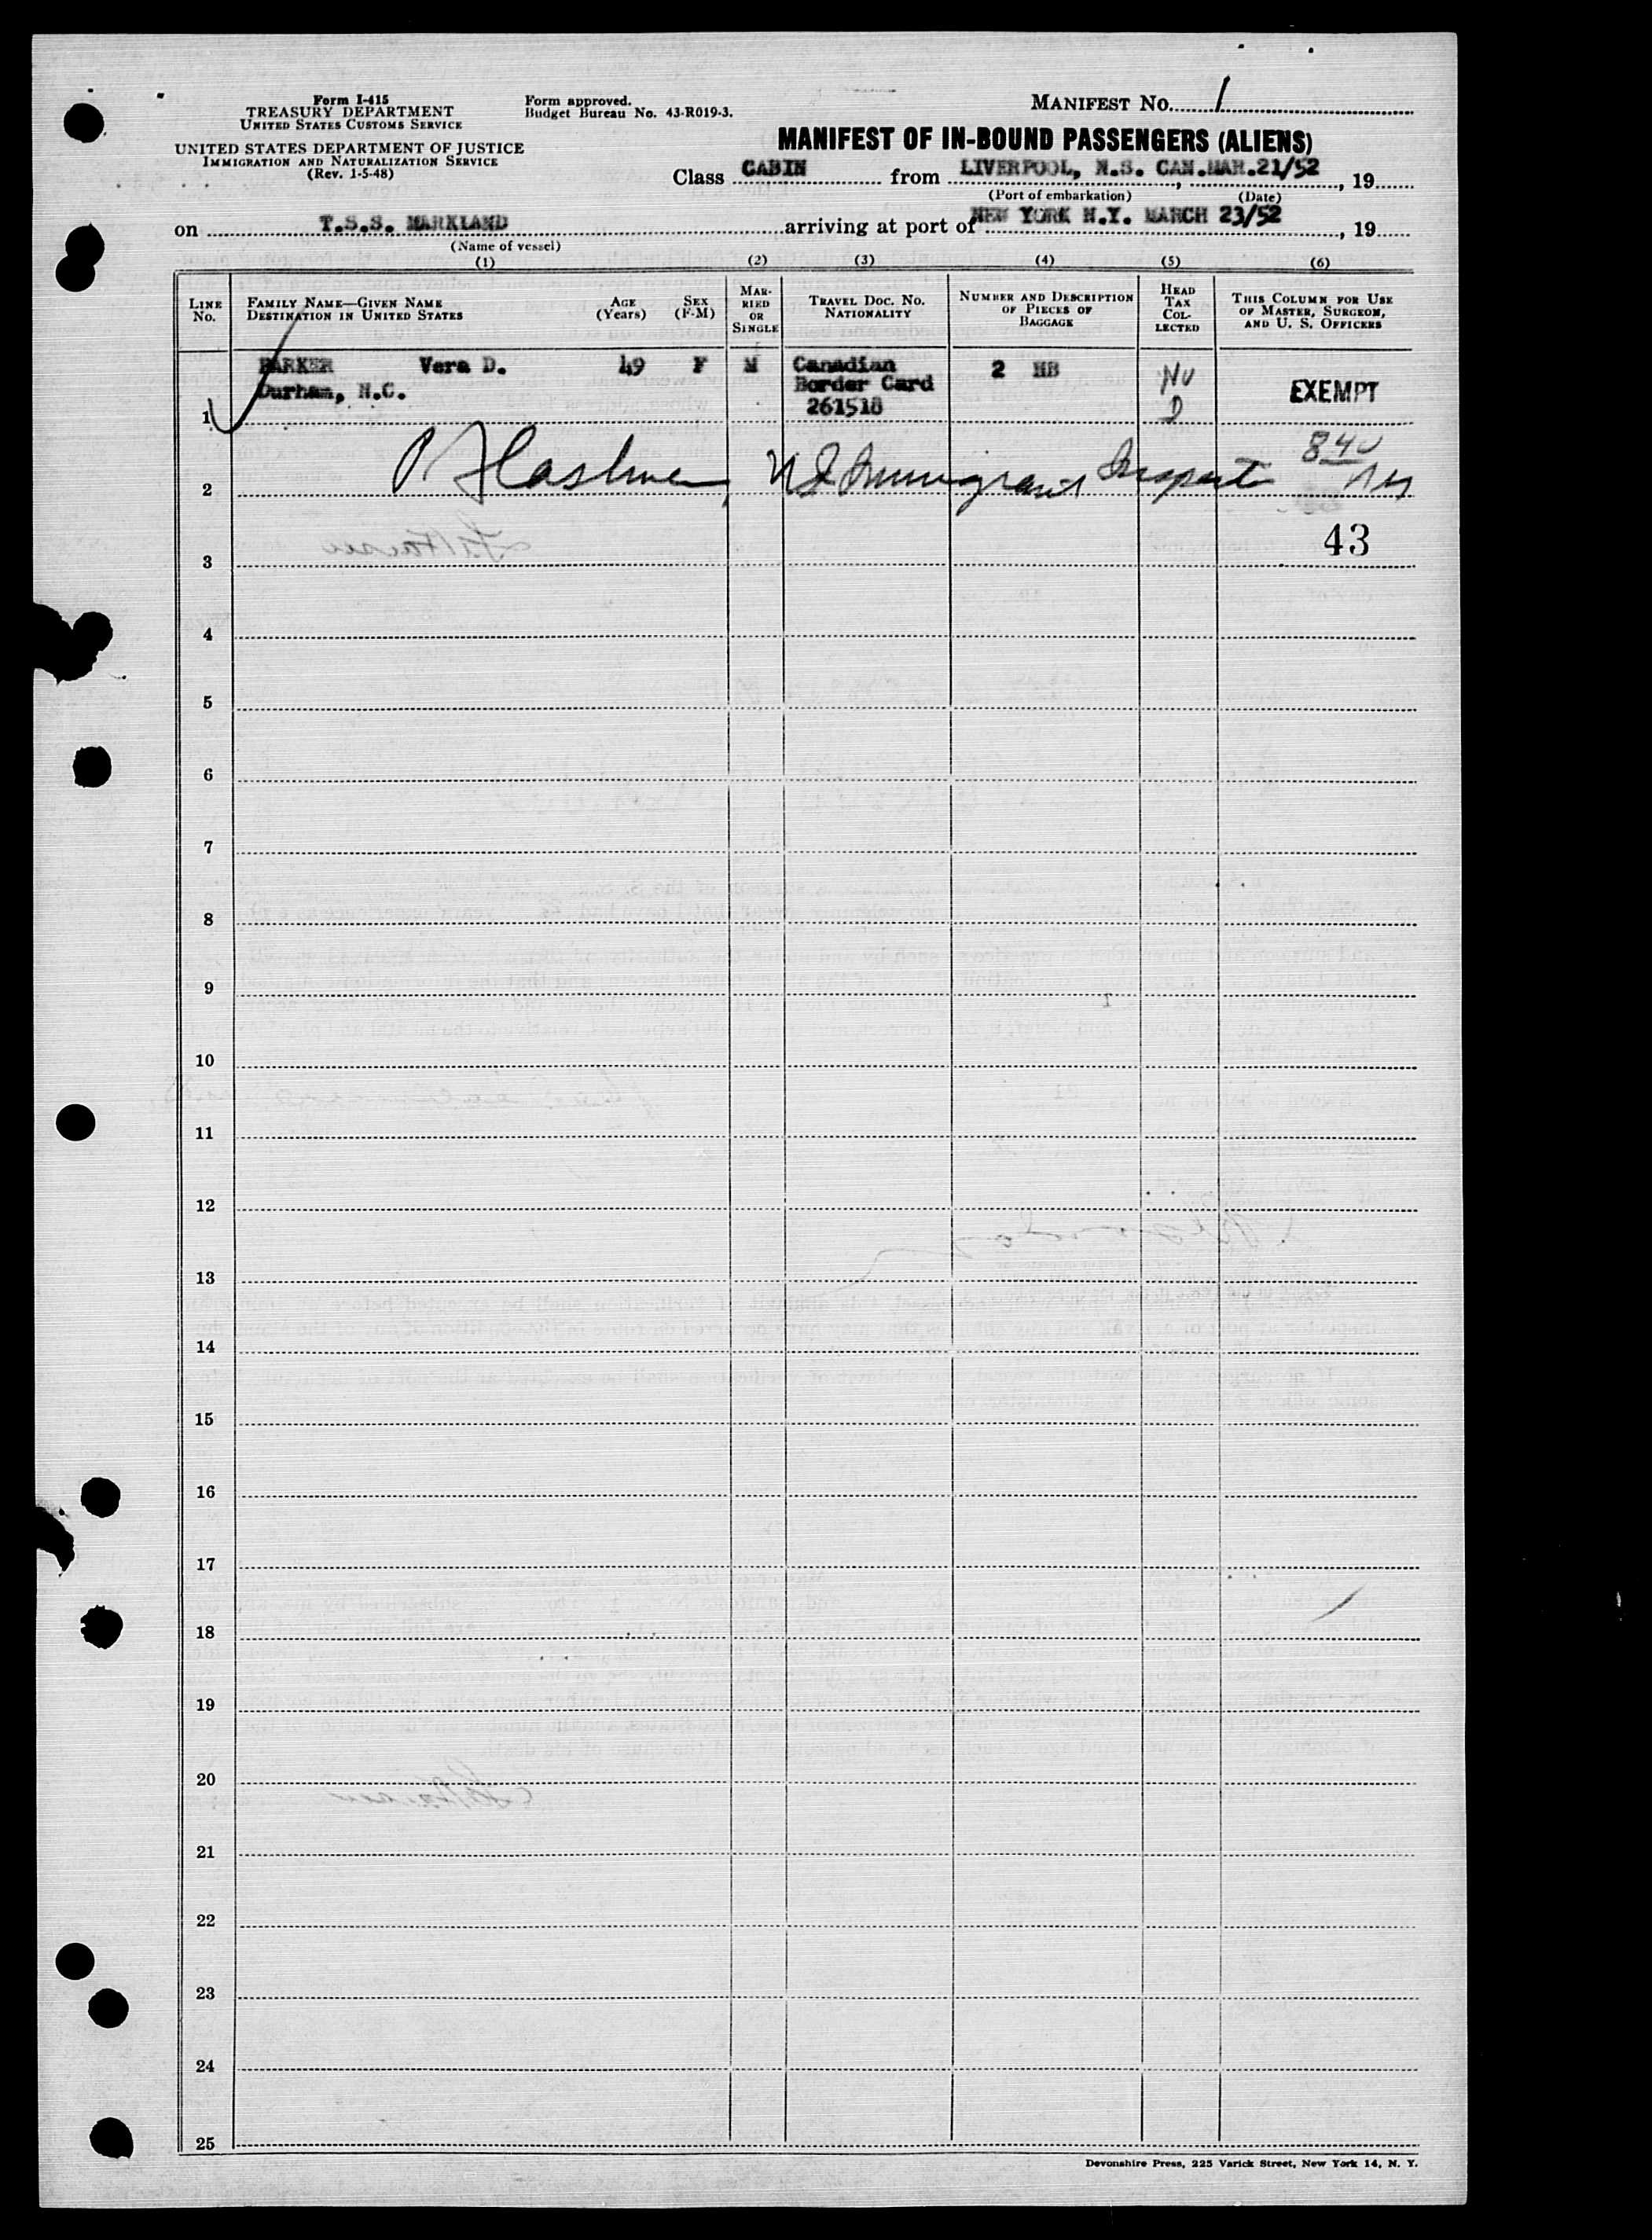 Form I-415
TREASURY DEPARTMENT
UNITED STATES CUSTOMS SERVICE
UNITED STATES DEPARTMENT OF JUSTICE
IMMIGRATION AND NATURALIZATION SERVICE
(Rev. 1-5-48)
Form approved.
Budget Bureau No. 43-R019-3.
MANIFEST NO. 1
MANIFEST OF IN-BOUND PASSENGERS (ALIENS)
Class CABIN from LIVERPOOL, N.S. CAN. MAR.21/52, 19
(Port of embarkation) (Date)
on T.S.S. MARKLAND arriving at port of NEW YORK N.Y. MARCH 23/52, 19
(Name of vessel)
(1) (2) (3) (4) (5) (6)
LINE NO.
FAMILY NAME—GIVEN NAME
DESTINATION IN UNITED STATES
AGE (Years)
SEX (F-M)
MARRIED OR SINGLE
TRAVEL DOC. NO.
NATIONALITY
NUMBER AND DESCRIPTION OF PIECES OF BAGGAGE
HEAD TAX COLLECTED
THIS COLUMN FOR USE OF MASTER, SURGEON, AND U. S. OFFICERS
1 PARKER Vera D. 49 F M Canadian 2 HB
Durham, N.C. Border Card EXEMPT
261518
2 Immigrant Inspector 840
43
3
4
5
6
7
8
9
10
11
12
13
14
15
16
17
18
19
20
21
22
23
24
25
Devonshire Press, 225 Varick Street, New York 14, N. Y.